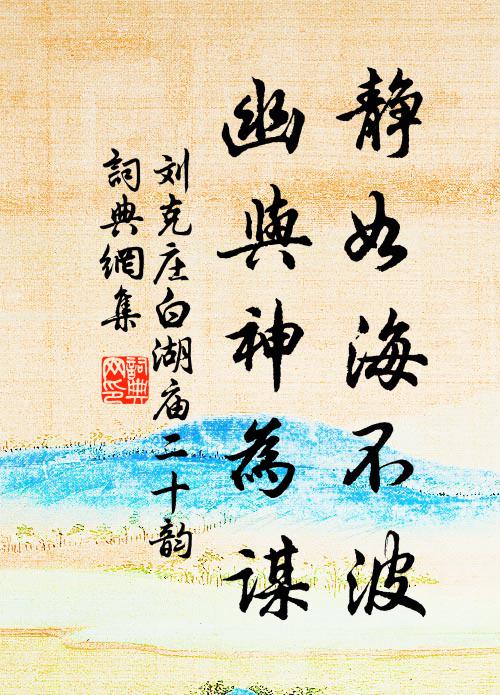 静如海不波
幽與神為謀
刘克庄白湖庙二十韵
詞典網集
詞典
网印